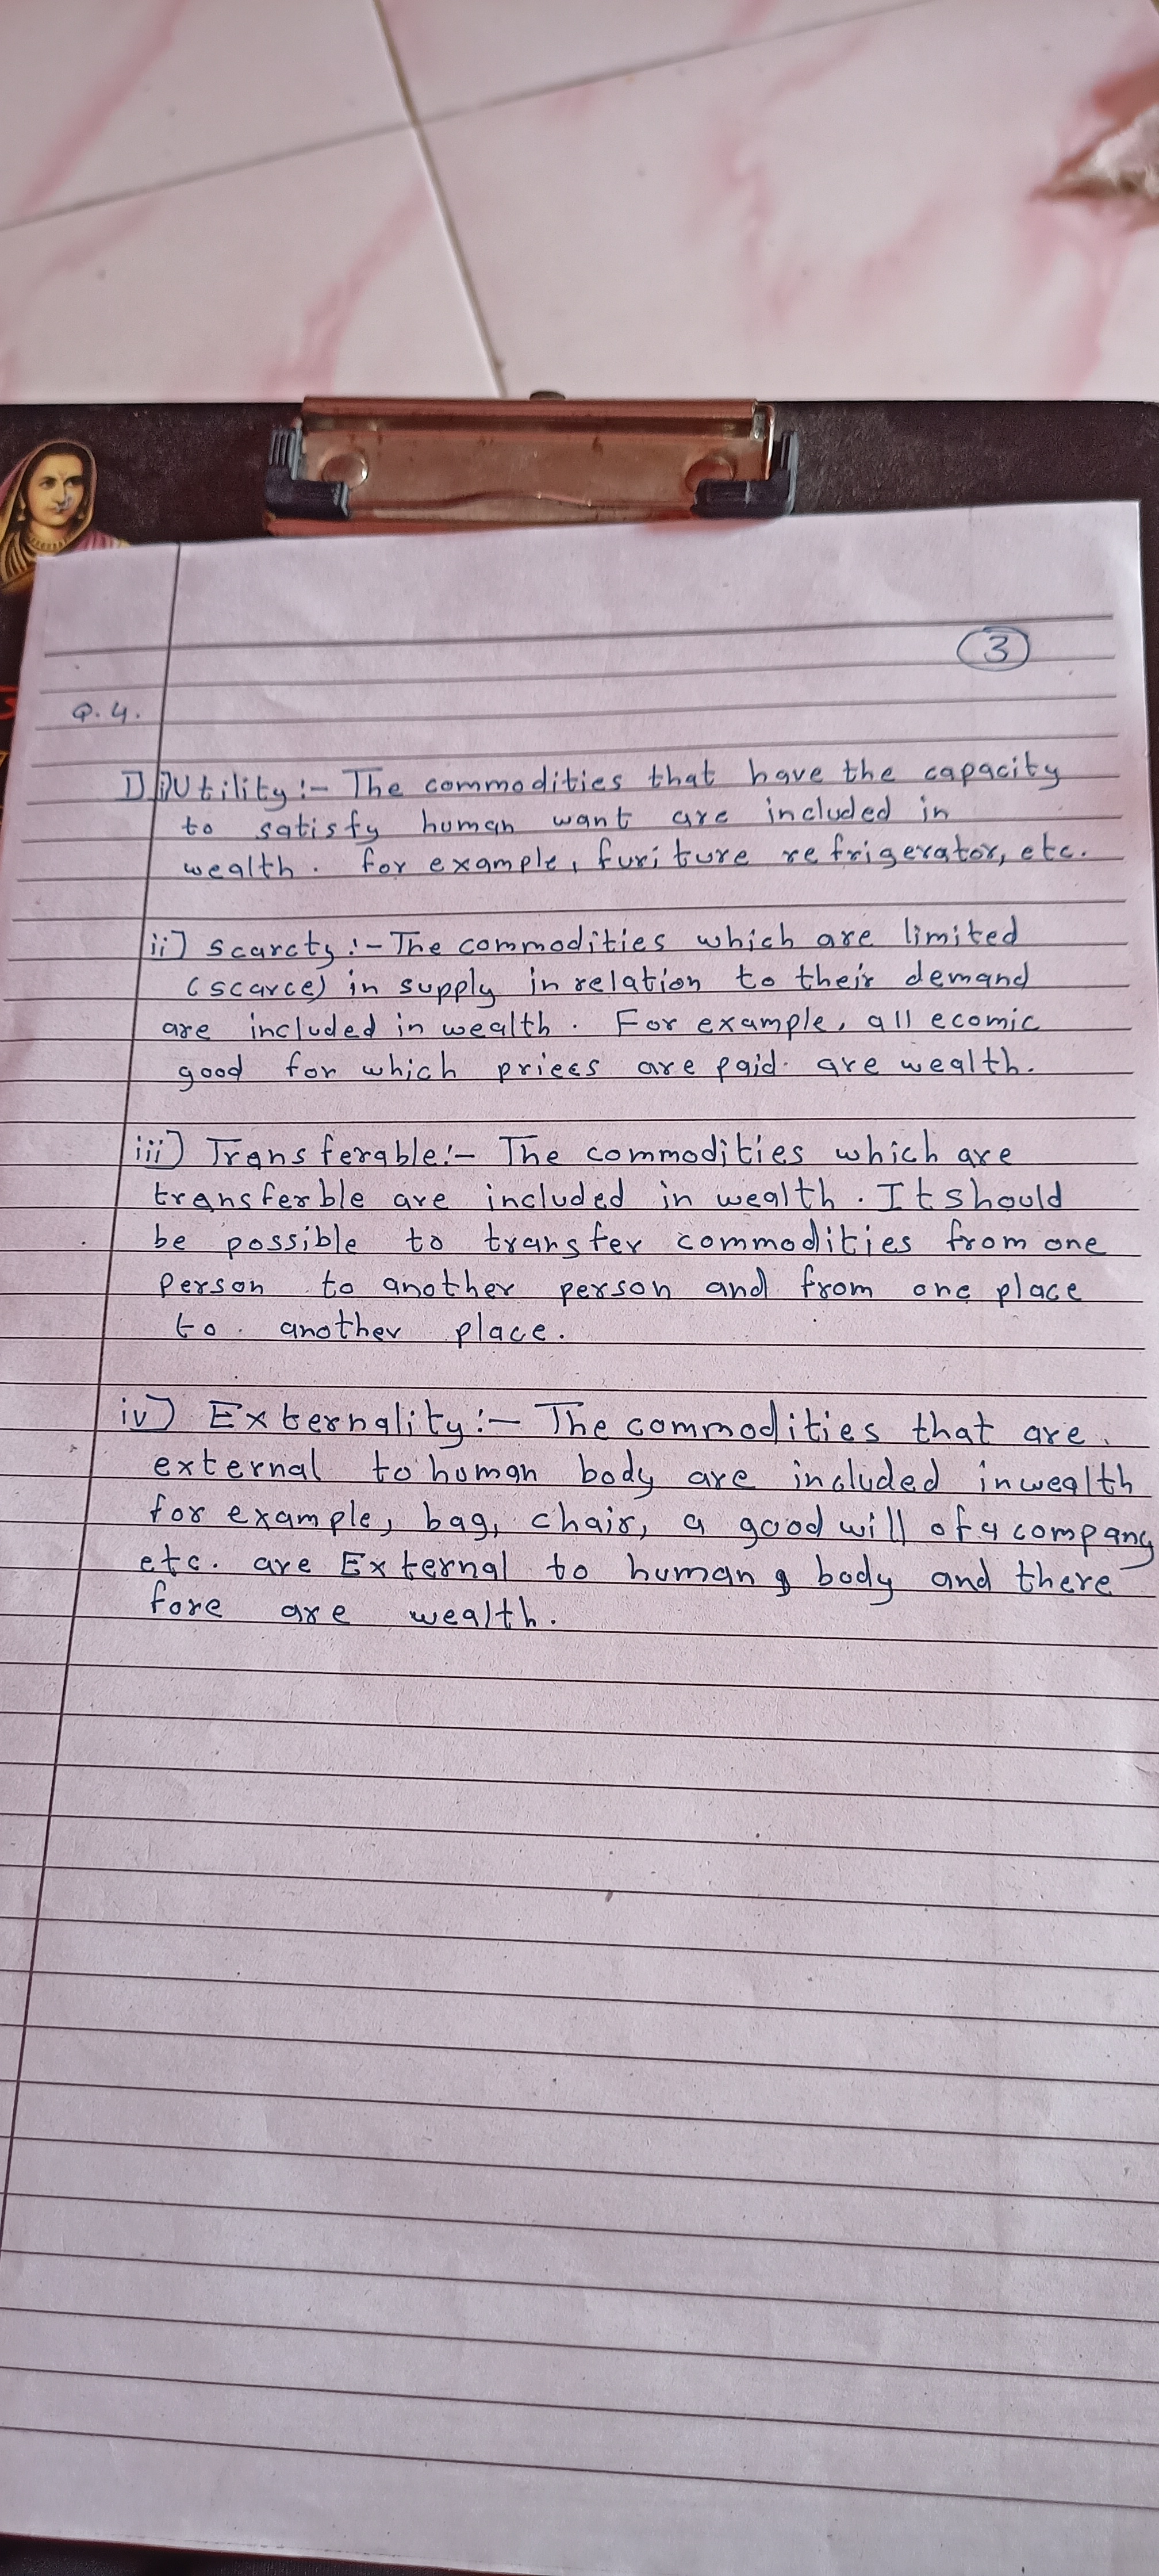 3
Q.4.
I) i) Utility :- The commodities that have the capacity
to satisfy human want are included in
wealth. for example, furiture refrigerator, etc.
ii) scarcty :- The commodities which are limited
(scarce) in supply in relation to their demand
are included in wealth. For example, all ecomic
good for which priees are paid. are wealth.
iii) Transferable:- The commodities which are
transferble are included in wealth. It should
be possible to transfer commodities from one
person to another person and from one place
to. another place.
iv) Externality :- The commodities that are.
external to human body are included in wealth
for example, bag, chair, a good will of a company
etc. are External to human body and there
fore are wealth.